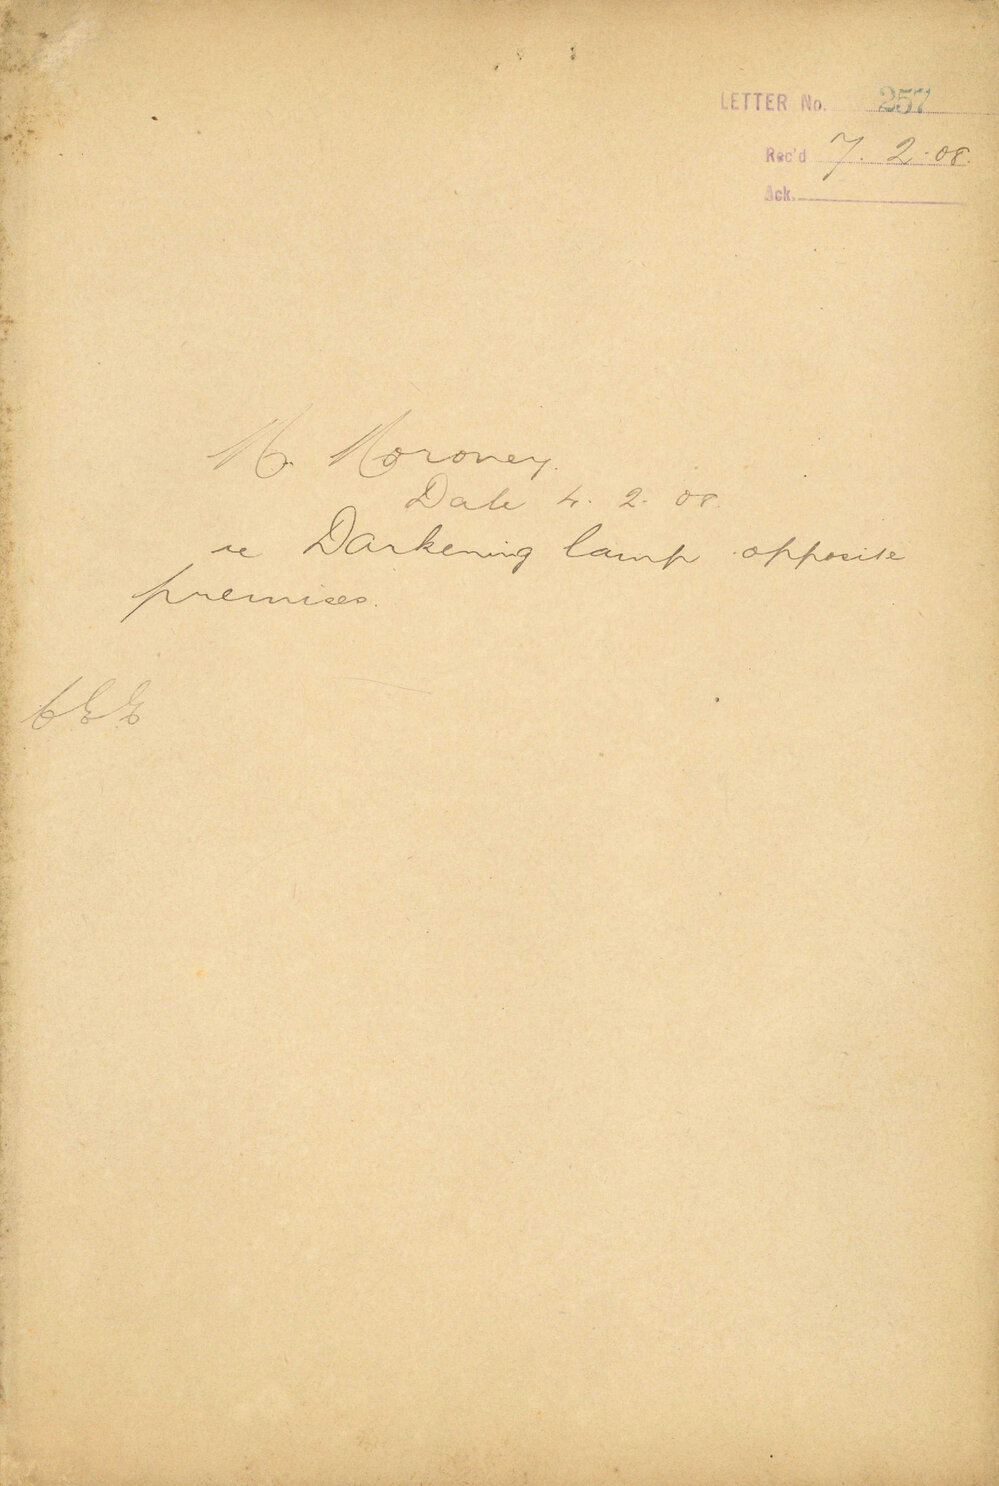 LETTER No. 257
Rec'd 7. 2. 08.
Ack.
M. Moroney.
Date 4. 2. 08.
re Darkening lamp opposite
premises.